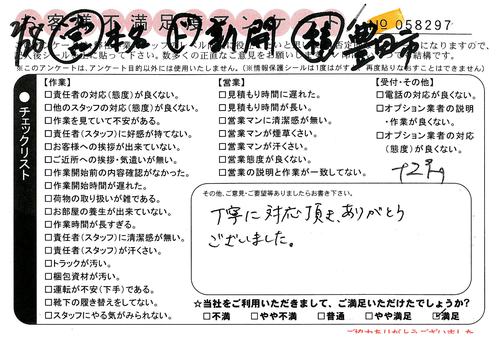 お客様不満足度アンケート No 058297
※このアンケートは、アンケート目的以外には使用いたしません。(※情報保護シールは1度はがすと再度貼りなおすことはできません)
● チェックリスト
【作業】
□責任者の対応(態度)が良くない。
□他のスタッフの対応(態度)が良くない。
□作業を見ていて不安がある。
□責任者(スタッフ)に好感が持てない。
□お客様への挨拶が出来ていない。
□ご近所への挨拶・気遣いが無い。
□作業開始前の内容確認がなかった。
□作業開始時間が遅れた。
□荷物の取り扱いが雑である。
□お部屋の養生が出来ていない。
□作業時間が長すぎる。
□責任者(スタッフ)に清潔感が無い。
□責任者(スタッフ)が汗くさい。
□トラックが汚い。
□梱包資材が汚い。
□運転が不安(下手)である。
□靴下の履き替えをしてない。
□スタッフにやる気がみられない。
【営業】
□見積もりに遅れた。
□見積もり時間が長い。
□営業マンに清潔感が無い。
□営業マンが煙草くさい。
□営業マンが汗くさい。
□営業態度が良くない。
□営業の説明と作業が一致してない。
【受付・その他】
□電話の対応が良くない。
□オプション業者の説明
・作業が良くない。
□オプション業者の対応
(態度)が良くない。
その他、ご意見・ご要望等ありましたらお書き下さい。
丁寧に対応頂き、ありがとう
ございました。
☆当社をご利用いただきまして、ご満足いただけたでしょうか?
□不満 □やや不満 □普通 □やや満足 ☑満足
ご協力ありがとうございました